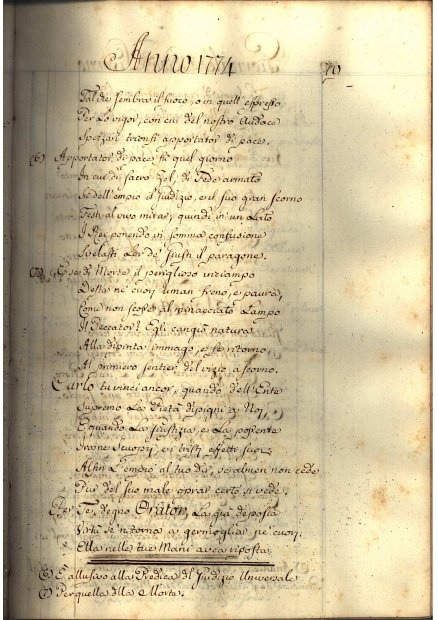 Anno 1774
70
Tal che sembra il fuoco, o in quell' espresso
Per lo vigor, con cui del nostro Audace
Spezzar trionfi apportator di pace.
(6) Apportator di pace fù quel giorno
In cui di sacro Zel, di Fede armato
Se dell' empio il Giudizio, ed il suo gran scorno
Festi al vivo mirar, quindi in un Lato
I Rei ponendo in somma confusione
Svelasti Lor de' Giusti il paragone.
(7) E se di Morte il periglioso inciampo
Desta ne' cuori uman freno, e paura,
Come non scosse al minacciato Lampo
Il Peccator? Egli cangiò natura
Alla dipinta immago, e fe ritorno
Al primiero sentier del vizio a scorno.
Carlo tu vinci ancor, quando dell' Ente
Supremo La Pietà dipigni a Noi,
E quando La Giustizia, e La possente
Ira ne scuopri, e i tristi effetti suoi
Alfin L' empio al tuo dir, se almen non cede
Più del suo male oprar certo si vede.
Per Te, degno Orator, La già deposta
Virtù se 'n torna a germogliar ne' cuori,
Ella nelle tue Mani avea riposta
(6) E' allusivo alla Predica del Giudizio Universale
(7) Per quella della Morte.